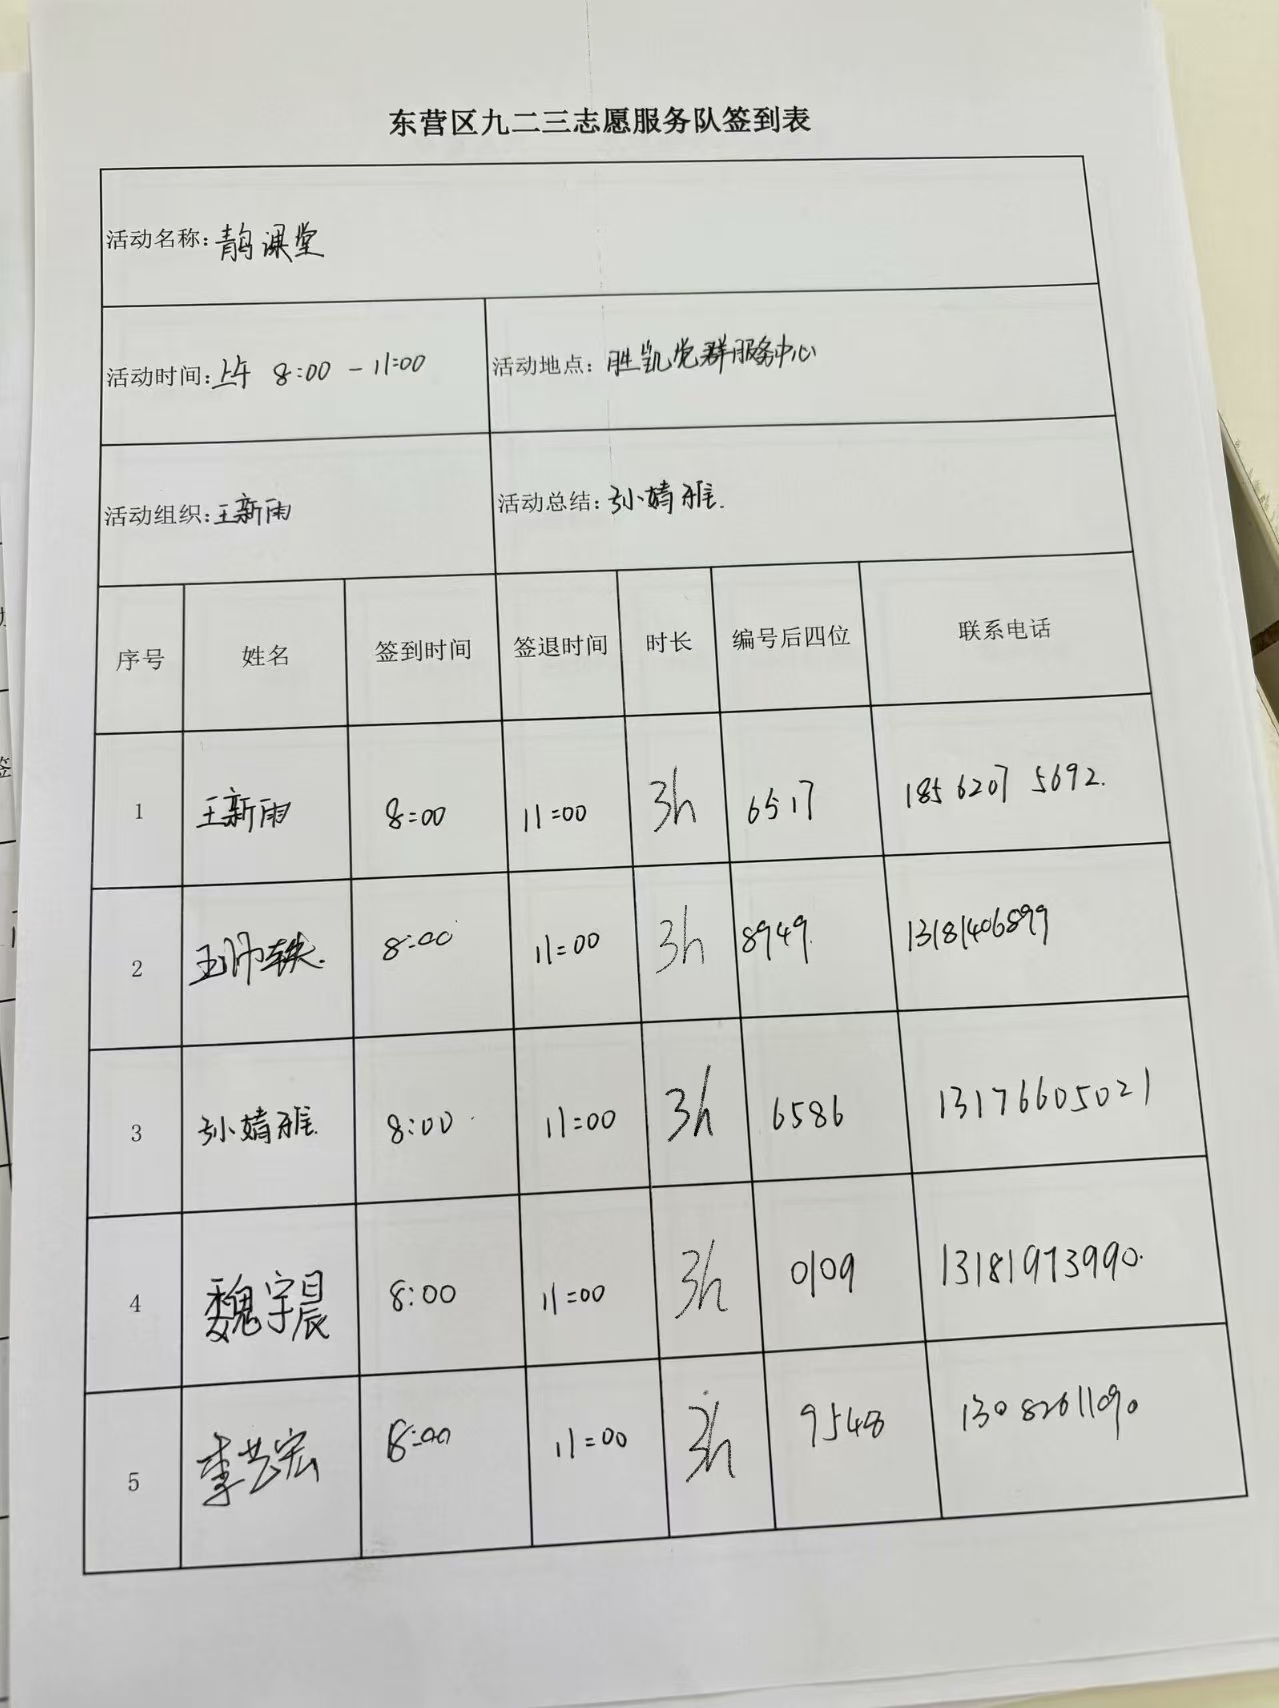 东营区九二三志愿服务队签到表
活动名称: 青鸟课堂
活动时间: 上午 8:00 - 11:00 活动地点: 胜凯党群服务中心
活动组织: 王新雨 活动总结: 孙婧雅.
序号 姓名 签到时间 签退时间 时长 编号后四位 联系电话
1 王新雨 8:00 11:00 3h 6517 185 6207 5692.
2 8:00 11:00 3h 8949. 13181406899
3 孙婧雅. 8:00 11:00 3h 6586 13176605021
4 魏宇晨 8:00 11:00 3h 0109 13181973990.
5 李艺宏 8:00 11:00 3h 9548 130 82611090